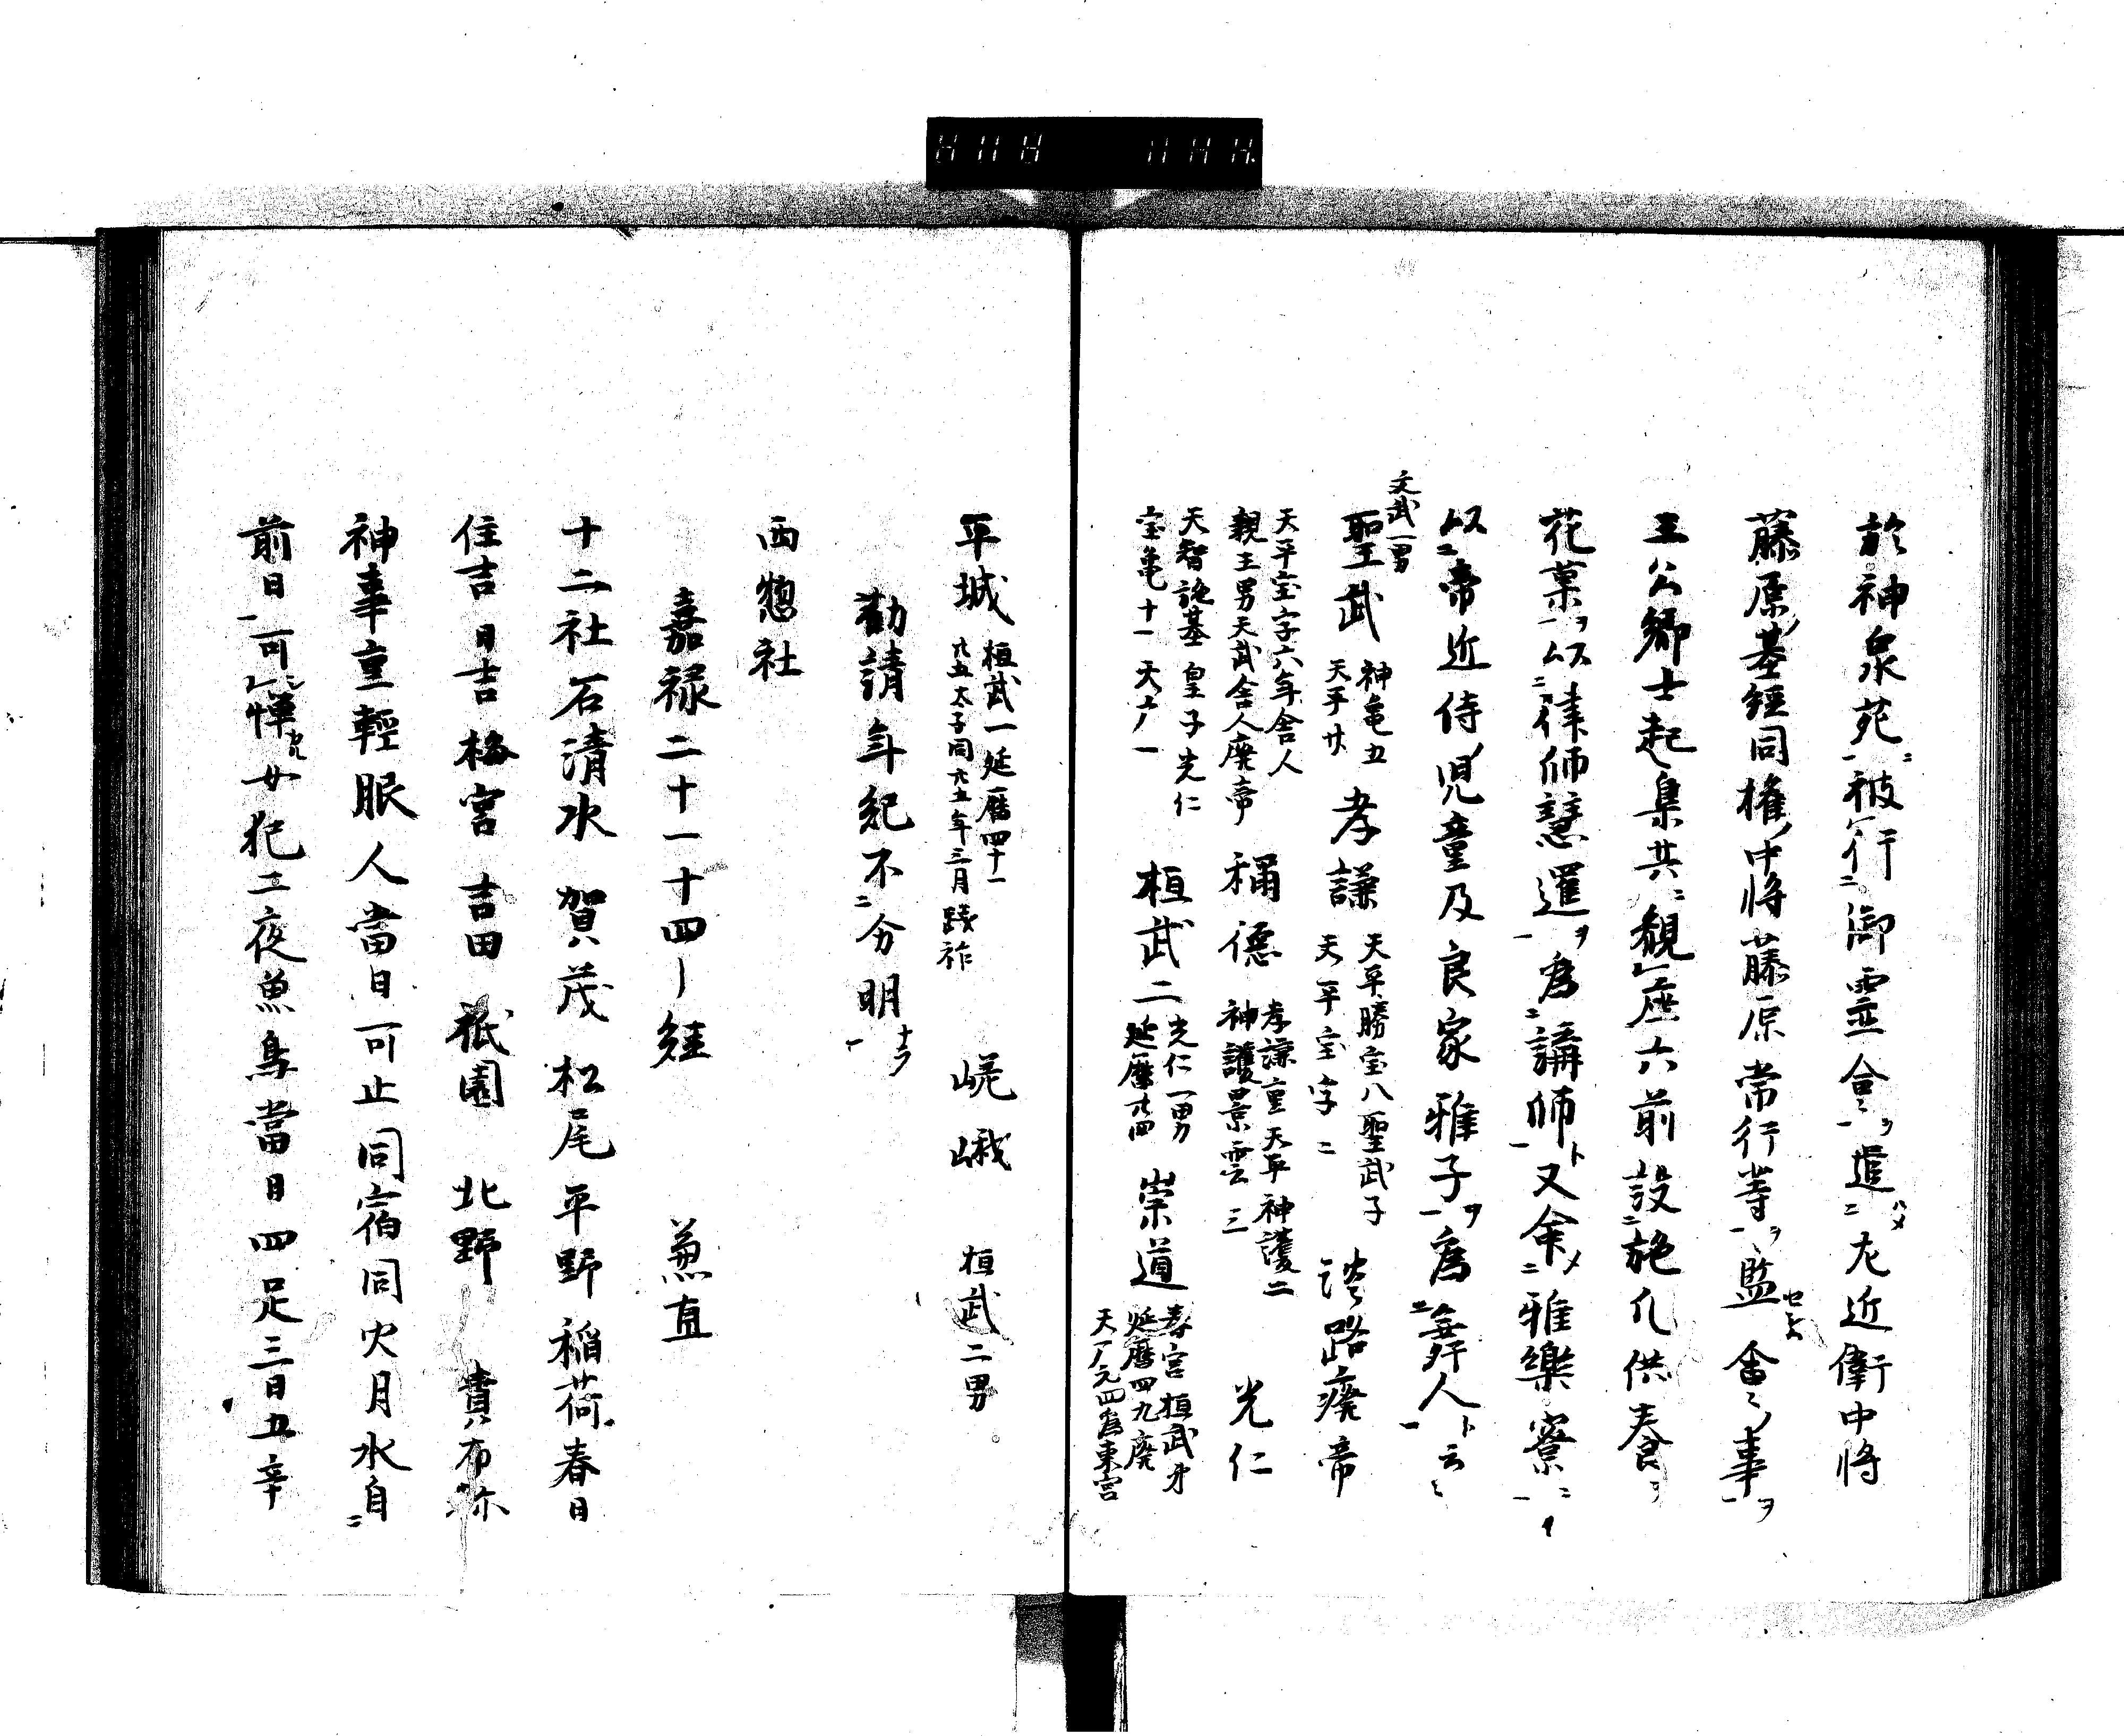 於神泉苑ニ被行御霊会ヲ遣ハメ左近衛中将
藤原ノ基経同権ノ中将藤原常行等ヲ監セシム會ノ事ヲ
王公卿士起集共ニ観座六前設施几供養ヲ
花菓ヲ以律師慧邏ヲ為講師ト又命メ雅樂寮ニ
以帝近侍ノ児童及良家雅子ヲ為舞人ト云〻
文武一男
聖武 神亀五 天平廿 孝謙 天平勝宝八聖武子 天平宝字二 淡路癈帝
天平宝字六年舎人
親王男天武舎人廃帝 稱德 孝謙重天平神護二 神護景雲三 光仁
天智施基皇子光仁
宝亀十一天广一 桓武 二光仁一男 延暦廿四 崇道 春宮桓武才 延暦四九廃 天广元四為東宮
平城 桓武一延暦四十一 廿五太子同廿五年三月踐祚 嵯峨 桓武二男
勸請年紀不分明
西惣社
嘉禄二十一十四 經 兼直
十二社石清水 賀茂 松尾 平野 稲荷 春日
住吉 日吉 梅宮 吉田 祇園 北野 貴布祢
神事重輕服人當日可止同宿同火月水自
前日可憚女犯二夜魚鳥當日四足三日五辛